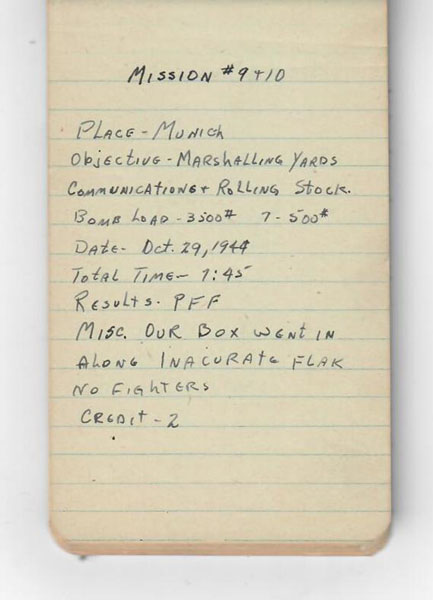 Mission #9+10
Place - Munich
Objective - Marshalling Yards
Communications + Rolling Stock.
Bomb Load - 3500# 7 - 500#
Date - Oct. 29, 1944
Total Time - 7:45
Results - PFF
Misc. Our Box went in
along Inacurate Flak
No Fighters
Credit - 2